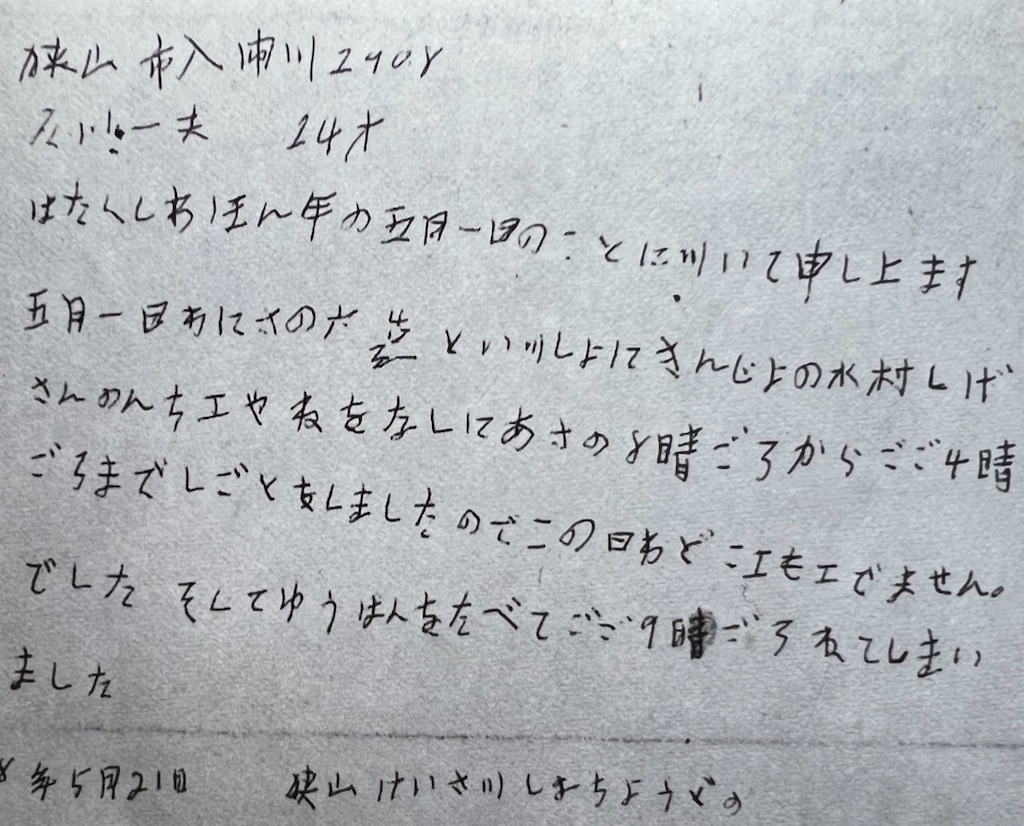 狭山市入間川2908
石川一夫 24才
はたくしわほん年の五月一日のことに川いて申し上ます
五月一日わにさの六造といツしよにきんじよの水村しげ
さんのんちエやねをなしにあさの8晴ごろからごご4晴
ごろまでしごとをしましたのでこの日わどこエもエでません。
でした そしてゆうはんをたべてごご9時ごろねてしまい
ました
年5月21日 狭山けいさ川しよちようどの